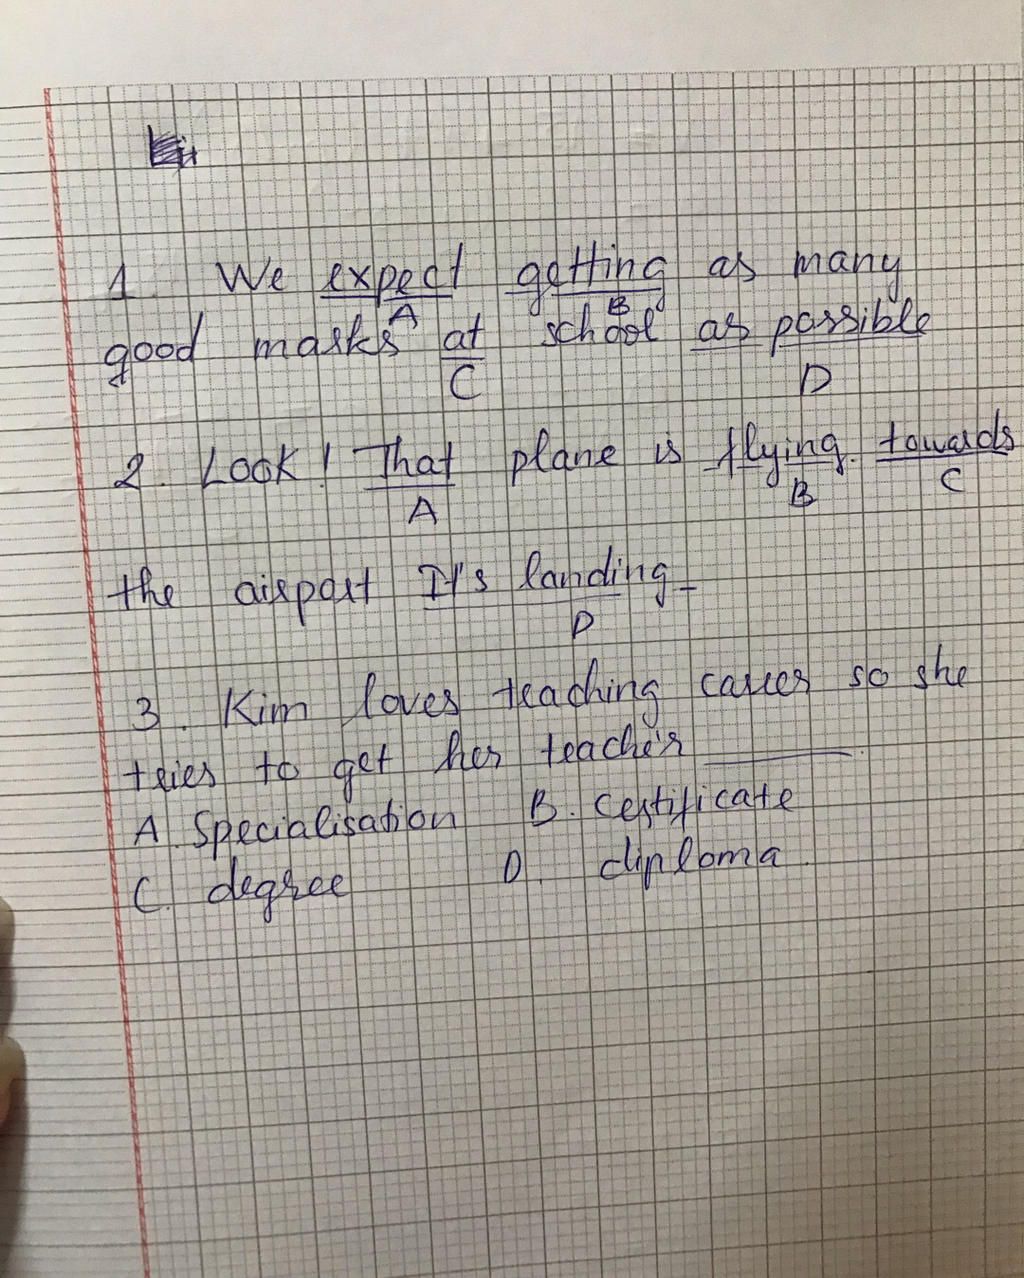 1. We expect getting as many
A B
good marks at school as possible
C D
2. Look! That plane is flying towards
A B C
the airport It's landing
D
3. Kim loves teaching career so she
tries to get her teacher's ______.
A. Specialisation B. certificate
C. degree D. diploma